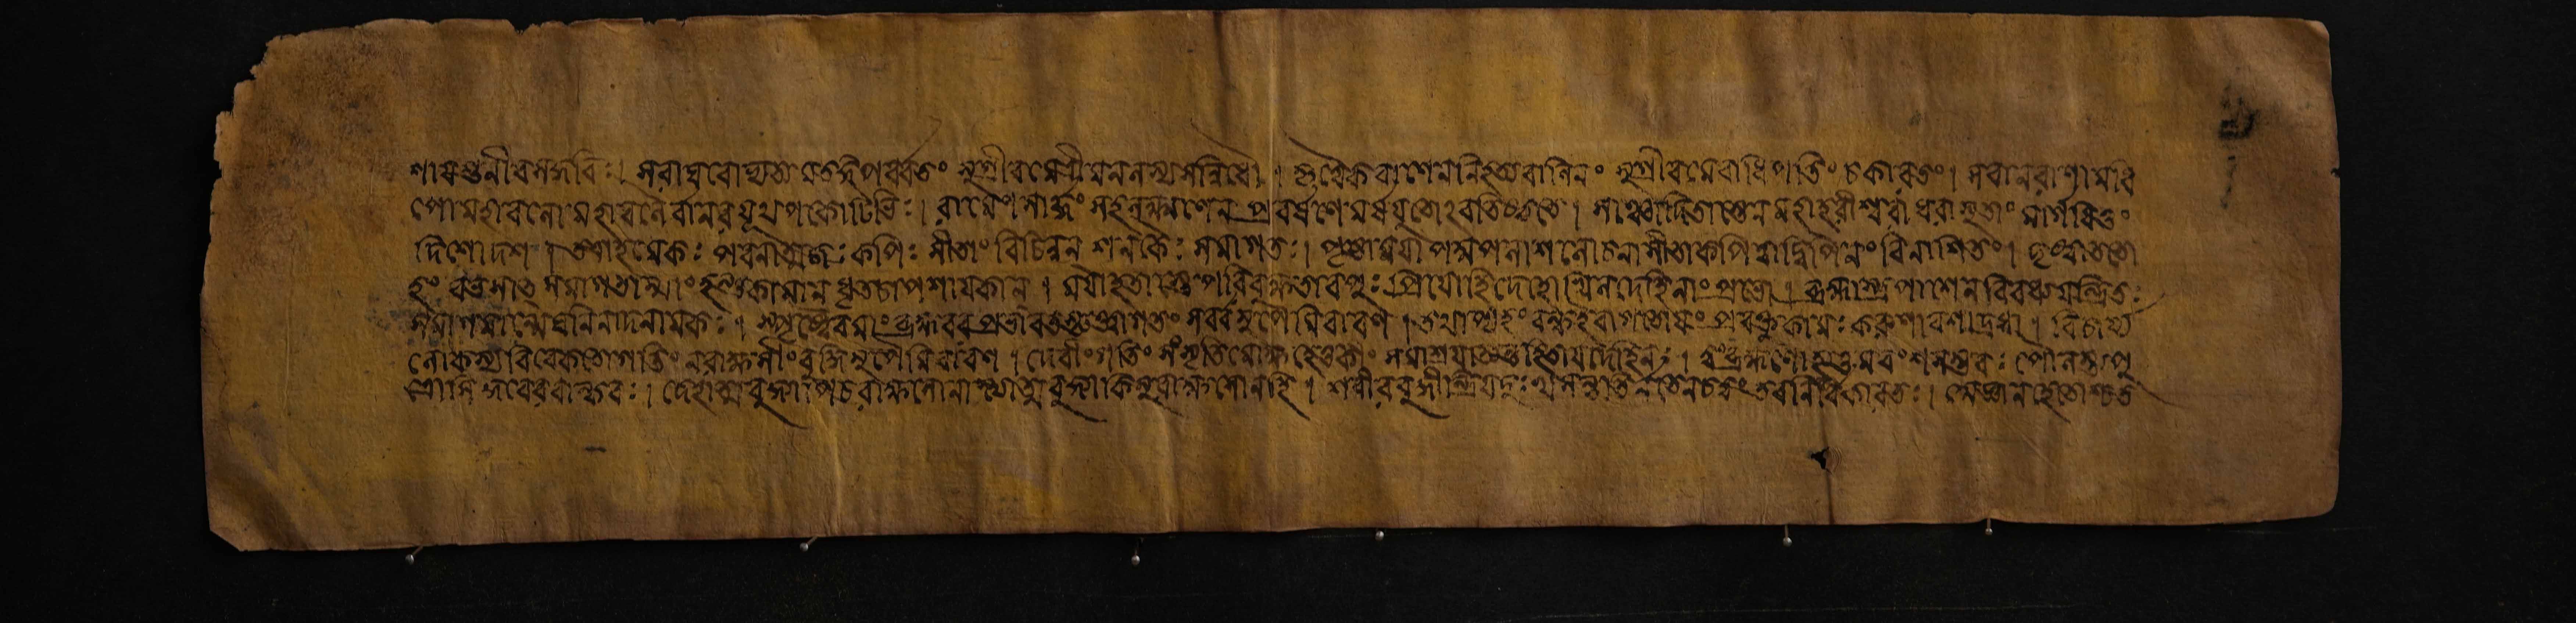 স রাঘবোভ্যেত্য মতঙ্গপর্ব্বতং সুগ্রীবমৈত্রীমনলস্য সন্নিধৌ । কৃত্বৈকবাণেন নিহত্য বালিনং সুগ্রীবমেবাধিপতিং চকার তং । স বানরাণামধি
পো মহাবলো মহাবলৈর্বানরযূথপকোটিভিঃ । রামেণ সার্দ্ধং সহ লক্ষ্মণেন প্রবর্ষণে মর্ষযুতোঽবতিষ্ঠতে । সঞ্চোদিতাস্তেন মহাহরীশ্বরা ধরাসুতাং মার্গয়িতুং
দিশো দশ । তত্রাহমেকঃ পবনাত্মজঃ কপিঃ সীতাং বিচিন্বন শনকৈঃ সমাগতঃ । দৃষ্টা ময়া পদ্মপলাশলোচনা সীতা কপিত্বাদ্বিপিনং বিনাশিতং । দৃষ্ট্বা ততো
হং রভসাত্ সমাগতান্মাং হন্তুকামান্ ধৃতচাপশায়কান্ । ময়া হতাস্তে পরিরক্ষিতং বপুঃ প্রিয়ো হি দেহোখিলদেহিনাং প্রভো । ব্রহ্মাস্ত্রপাশেন
সমাগমন্মেঘনিনাদনামকঃ । স্পৃষ্ট্বৈব মাং ব্রহ্মবরপ্রভাবত গতং সর্ব্বমুপৈমি রাবণ । তথাপ্যহং বদ্ধ ইবাগতো প্রবক্তুকামঃ করুণা বিচার্য্য
লোকস্য বিবেকতো গতিং ন রাক্ষসীং বুদ্ধিমুপৈমি রাবণ । দেবীং গতিং সংসৃতিমোক্ষহেতুকীং সমাশ্রয়াত্যন্তহিতায় দেহিনঃ । ত্বং ব্রহ্মণো হ্যুত্তমবংশসম্ভবঃ পৌলস্ত্যপু
ত্রোসি কুবেরবান্ধবঃ । দেহাত্মবুদ্ধ্যাপি চ রাক্ষসো নাস্যাত্মবুদ্ধ্যা কিমু রাক্ষসো নহি । শরীরবুদ্ধীন্দ্রিয়দুঃখসন্ততির্ন তে ন চ ত্বং তব নির্বিকারতঃ । অজ্ঞানহেতোশ্চ ত